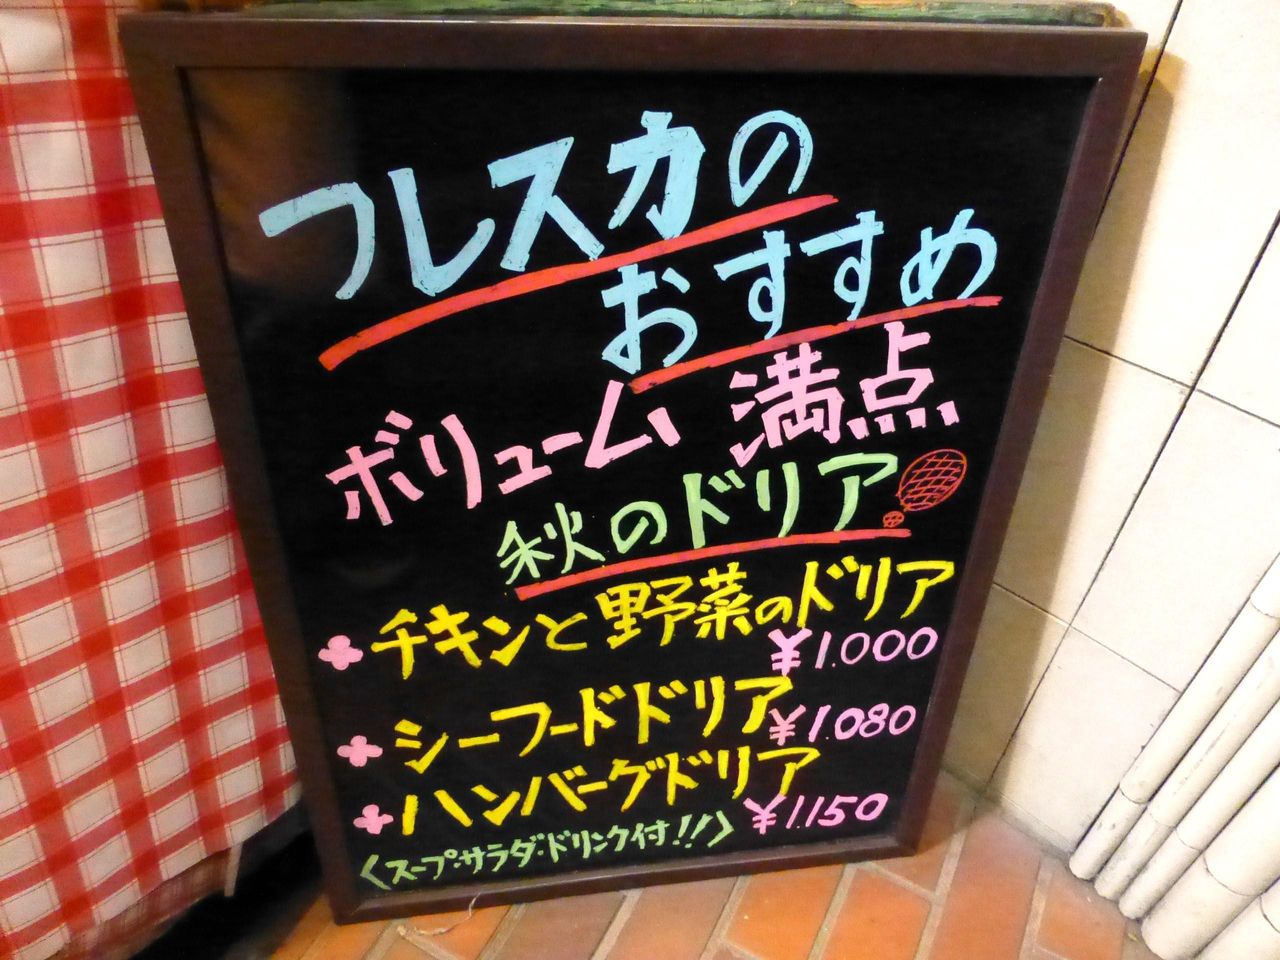 フレスカの
おすすめ
ボリューム 満点
秋のドリア
チキンと野菜のドリア
¥1.000
シーフードドリア
¥1.080
ハンバーグドリア
¥1.150
〈スープ・サラダ・ドリンク付!!〉